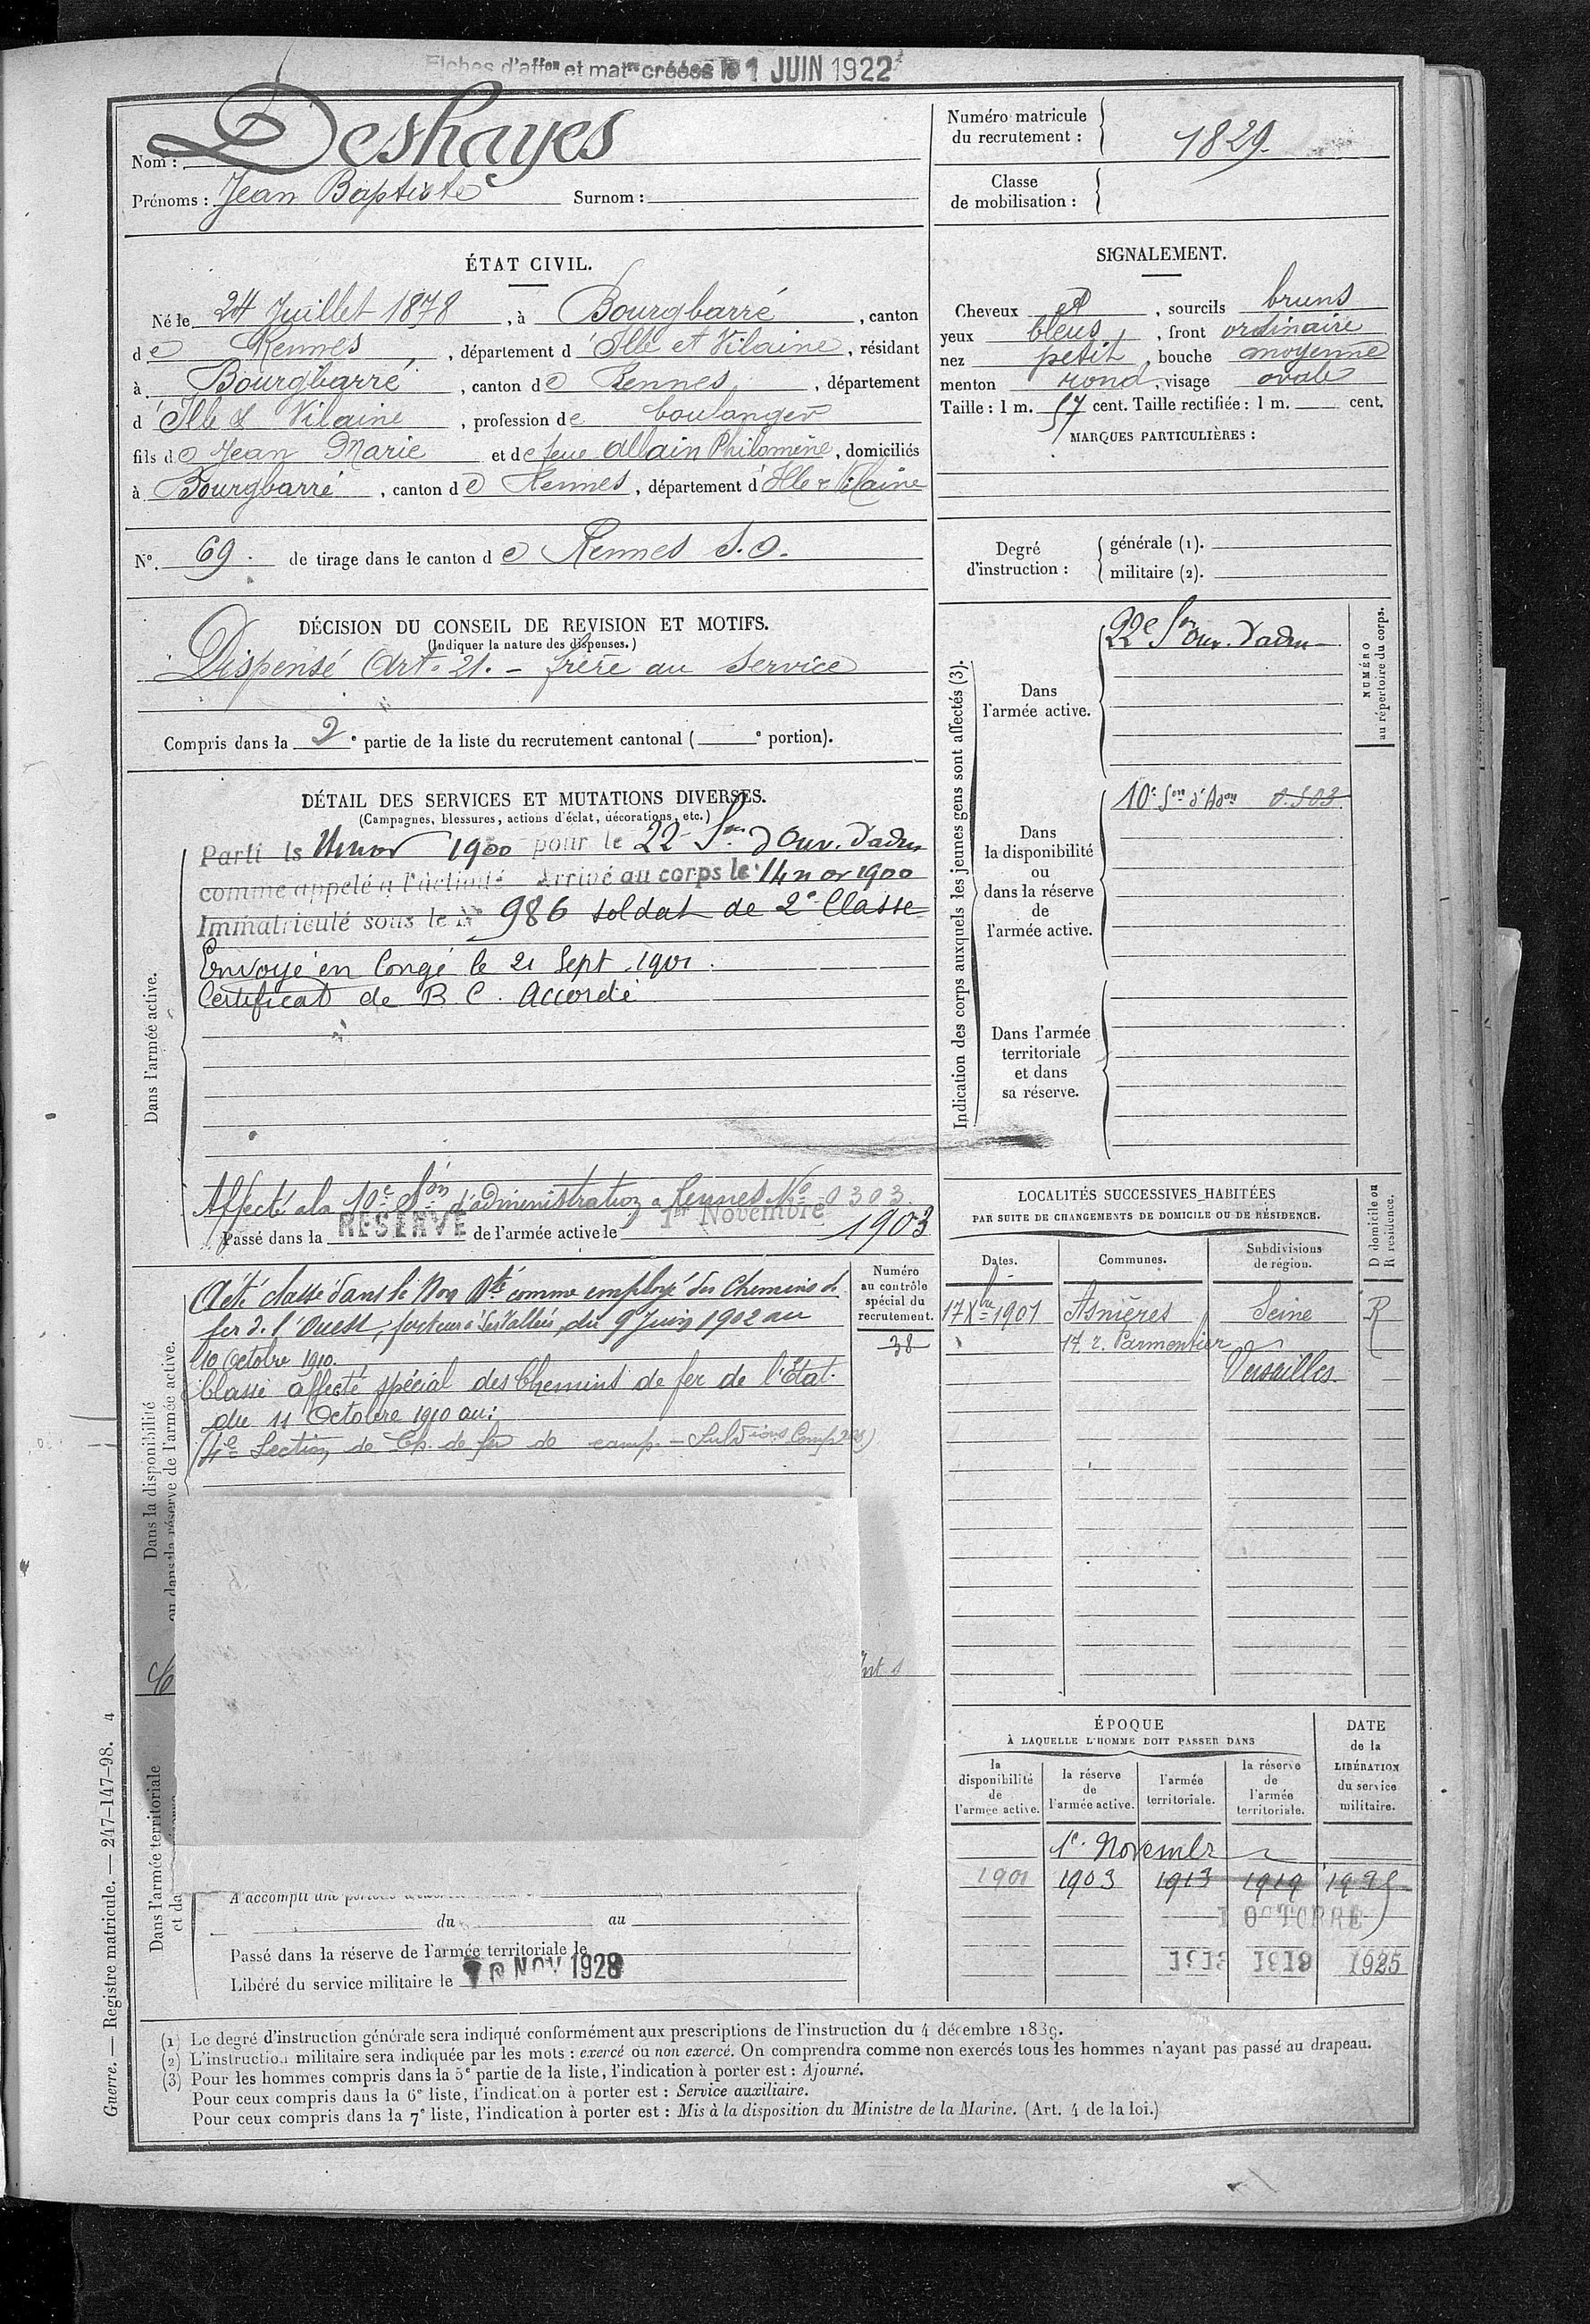 Fiches d'affon et matre créées le 1 JUIN 1922
Nom : Deshayes
Prénoms : Jean Baptiste Surnom :
Numéro matricule
du recrutement : 1829.
Classe
de mobilisation :
ÉTAT CIVIL.
Né le 24 Juillet 1878, à Bourgbarré, canton
de Rennes, département d'Ille et Vilaine, résidant
à Bourgbarré, canton de Rennes, département
d'Ille & Vilaine, profession de boulanger
fils de Jean Marie et de feue Allain Philomène, domiciliés
à Bourgbarré, canton de Rennes, département d'Ille & Vilaine
SIGNALEMENT.
Cheveux et, sourcils bruns
yeux bleus, front ordinaire
nez petit, bouche moyenne
menton rond, visage ovale
Taille : 1 m. 57 cent. Taille rectifiée : 1 m. cent.
MARQUES PARTICULIÈRES :
N°. 69. de tirage dans le canton de Rennes S.O.
Degré
d'instruction :
générale (1).
militaire (2).
DÉCISION DU CONSEIL DE REVISION ET MOTIFS.
(Indiquer la nature des dispenses.)
Dispensé Art. 21. - frère au service
Compris dans la 2e partie de la liste du recrutement cantonal ( e portion).
DÉTAIL DES SERVICES ET MUTATIONS DIVERSES.
(Campagnes, blessures, actions d'éclat, décorations, etc.)
Dans l'armée active.
Parti le 1900 pour le 22e Son d'Ouv. d'adm
comme appelé à l'activité Arrivé au corps le 14 nov 1900
Immatriculé sous le N° 986 soldat de 2e Classe
Envoyé en Congé le 21 Sept. 1901.
Certificat de B. C. Accordé
Affecté à la 10e Son d'administration à Rennes No 0303.
Passé dans la RÉSERVE de l'armée active le 1er Novembre 1903
Indication des corps auxquels les jeunes gens sont affectés (3).
NUMÉRO
au répertoire du corps.
Dans
l'armée active.
22e Son Ouv. d'adm
Dans
la disponibilité
ou
dans la réserve
de
l'armée active.
10e Son d'Adon 0.303
Dans l'armée
territoriale
et dans
sa réserve.
Dans la disponibilité
ou dans la réserve de l'armée active.
A été classé dans le Non Blé comme employé des Chemins de
fer de l'Ouest, facteur à, du 9 Juin 1902 au
10 Octobre 1910.
Classé affecté spécial des Chemins de fer de l'Etat
du 11 Octobre 1910 au :
(4e Section de Ch. de fer de camp. - Subdions Comp)
Numéro
au contrôle
spécial du
recrutement.
38
LOCALITÉS SUCCESSIVES HABITÉES
PAR SUITE DE CHANGEMENTS DE DOMICILE OU DE RÉSIDENCE.
Dates.
Communes.
Subdivisions
de région.
D domicile ou
R résidence.
17 Xbre 1901 Asnières Seine R
17 r. Parmentier
Versailles
ÉPOQUE
À LAQUELLE L'HOMME DOIT PASSER DANS
la
disponibilité
de
l'armée active.
la réserve
de
l'armée active.
l'armée
territoriale.
la réserve
de
l'armée
territoriale.
DATE
de la
LIBÉRATION
du service
militaire.
1er Novembre
1901 1903 1913 1919 1925
1 OCTOBRE
1913 1919 1925
Dans l'armée territoriale
et da
A accompli une
du au
Passé dans la réserve de l'armée territoriale le
Libéré du service militaire le 10 NOV 1928
(1) Le degré d'instruction générale sera indiqué conformément aux prescriptions de l'instruction du 4 décembre 1889.
(2) L'instruction militaire sera indiquée par les mots : exercé ou non exercé. On comprendra comme non exercés tous les hommes n'ayant pas passé au drapeau.
(3) Pour les hommes compris dans la 5e partie de la liste, l'indication à porter est : Ajourné.
Pour ceux compris dans la 6e liste, l'indication à porter est : Service auxiliaire.
Pour ceux compris dans la 7e liste, l'indication à porter est : Mis à la disposition du Ministre de la Marine. (Art. 4 de la loi.)
Guerre. — Registre matricule. — 247-147-98. 4